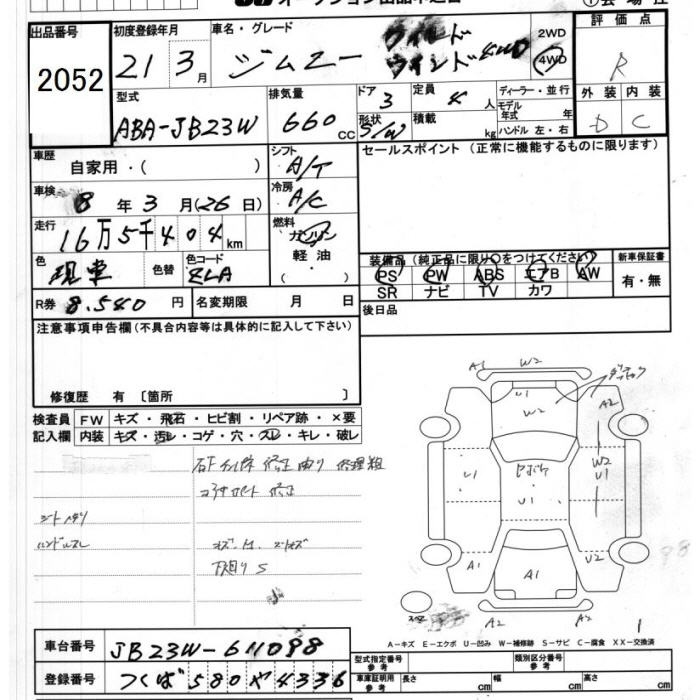 出品番号 初度登録年月 車名・グレード 2WD 評価点
2052 21 3月 ジムニー ワイルドウインド 4WD 4WD R
型式 排気量 ドア 定員 ディーラー・並行 外装 内装
ABA-JB23W 660cc 3 4人 モデル年式 年 D C
形状 S/W 積載 kg ハンドル 左・右
車歴 シフト セールスポイント (正常に機能するものに限ります)
自家用・( ) A/T
車検 8年3月(26日) 冷房 A/C
走行 16万5千404km 燃料 ガソリン
軽油・
( )
色 現車 色替 色コード ZLA
装備品 (純正品に限り○をつけてください) 新車保証書
PS PW ABS エアB AW 有・無
SR ナビ TV カワ
R券 8.540円 名変期限 月 日 後日品
注意事項申告欄 (不具合内容等は具体的に記入して下さい)
修復歴 有 〔箇所 〕
検査員 FW キズ・飛石・ヒビ割・リペア跡・×要
記入欄 内装 キズ・汚レ・コゲ・穴・スレ・キレ・破レ
コアサポート 修正
シートヤブリ
ハンドルスレ
下廻りS
A1 W2 A2
U1 W2
U1 U1 W2 U1
A1 A1 U2
A2 A2
A-キズ E-エクボ U-凹み W-補修跡 S-サビ C-腐食 XX-交換済
車台番号 JB23W-611098
登録番号 つくば580や4336
型式指定番号 参考 類別区分番号 参考
車庫証明用 参考 長さ cm 幅 cm 高さ cm